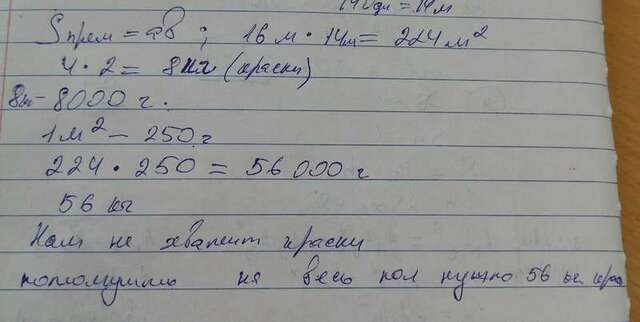 140дм = 14м
Sпрям = ав ; 16 м · 14м = 224 м²
4 · 2 = 8 кг (краски)
8кг - 8000 г.
1 м² - 250 г
224 · 250 = 56 000 г
56 кг
Нам не хватит краски
потомушто на весь пол нужно 56 кг. крас